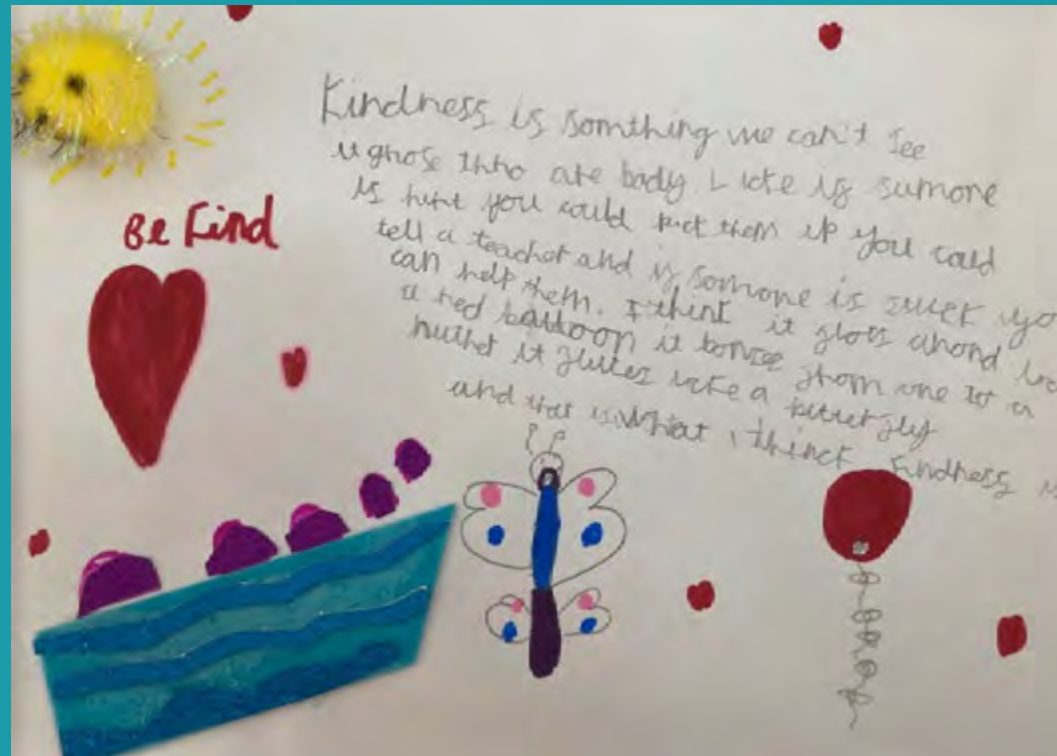 Be Kind
Kindness is somthing we can't see
it ghose thro are body Like if sumone
is hurt you could pick them up you could
tell a teacher and if somone is stuck yo
can help them. I think it
a red balloon it from one to a
it like a butterfly
and that is What i thinck kindness